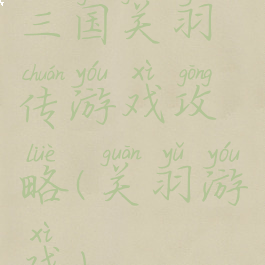 三国关羽
chuán yóu xì gōng
传游戏攻
lüè guān yǔ yóu
略(关羽游
xì
戏)